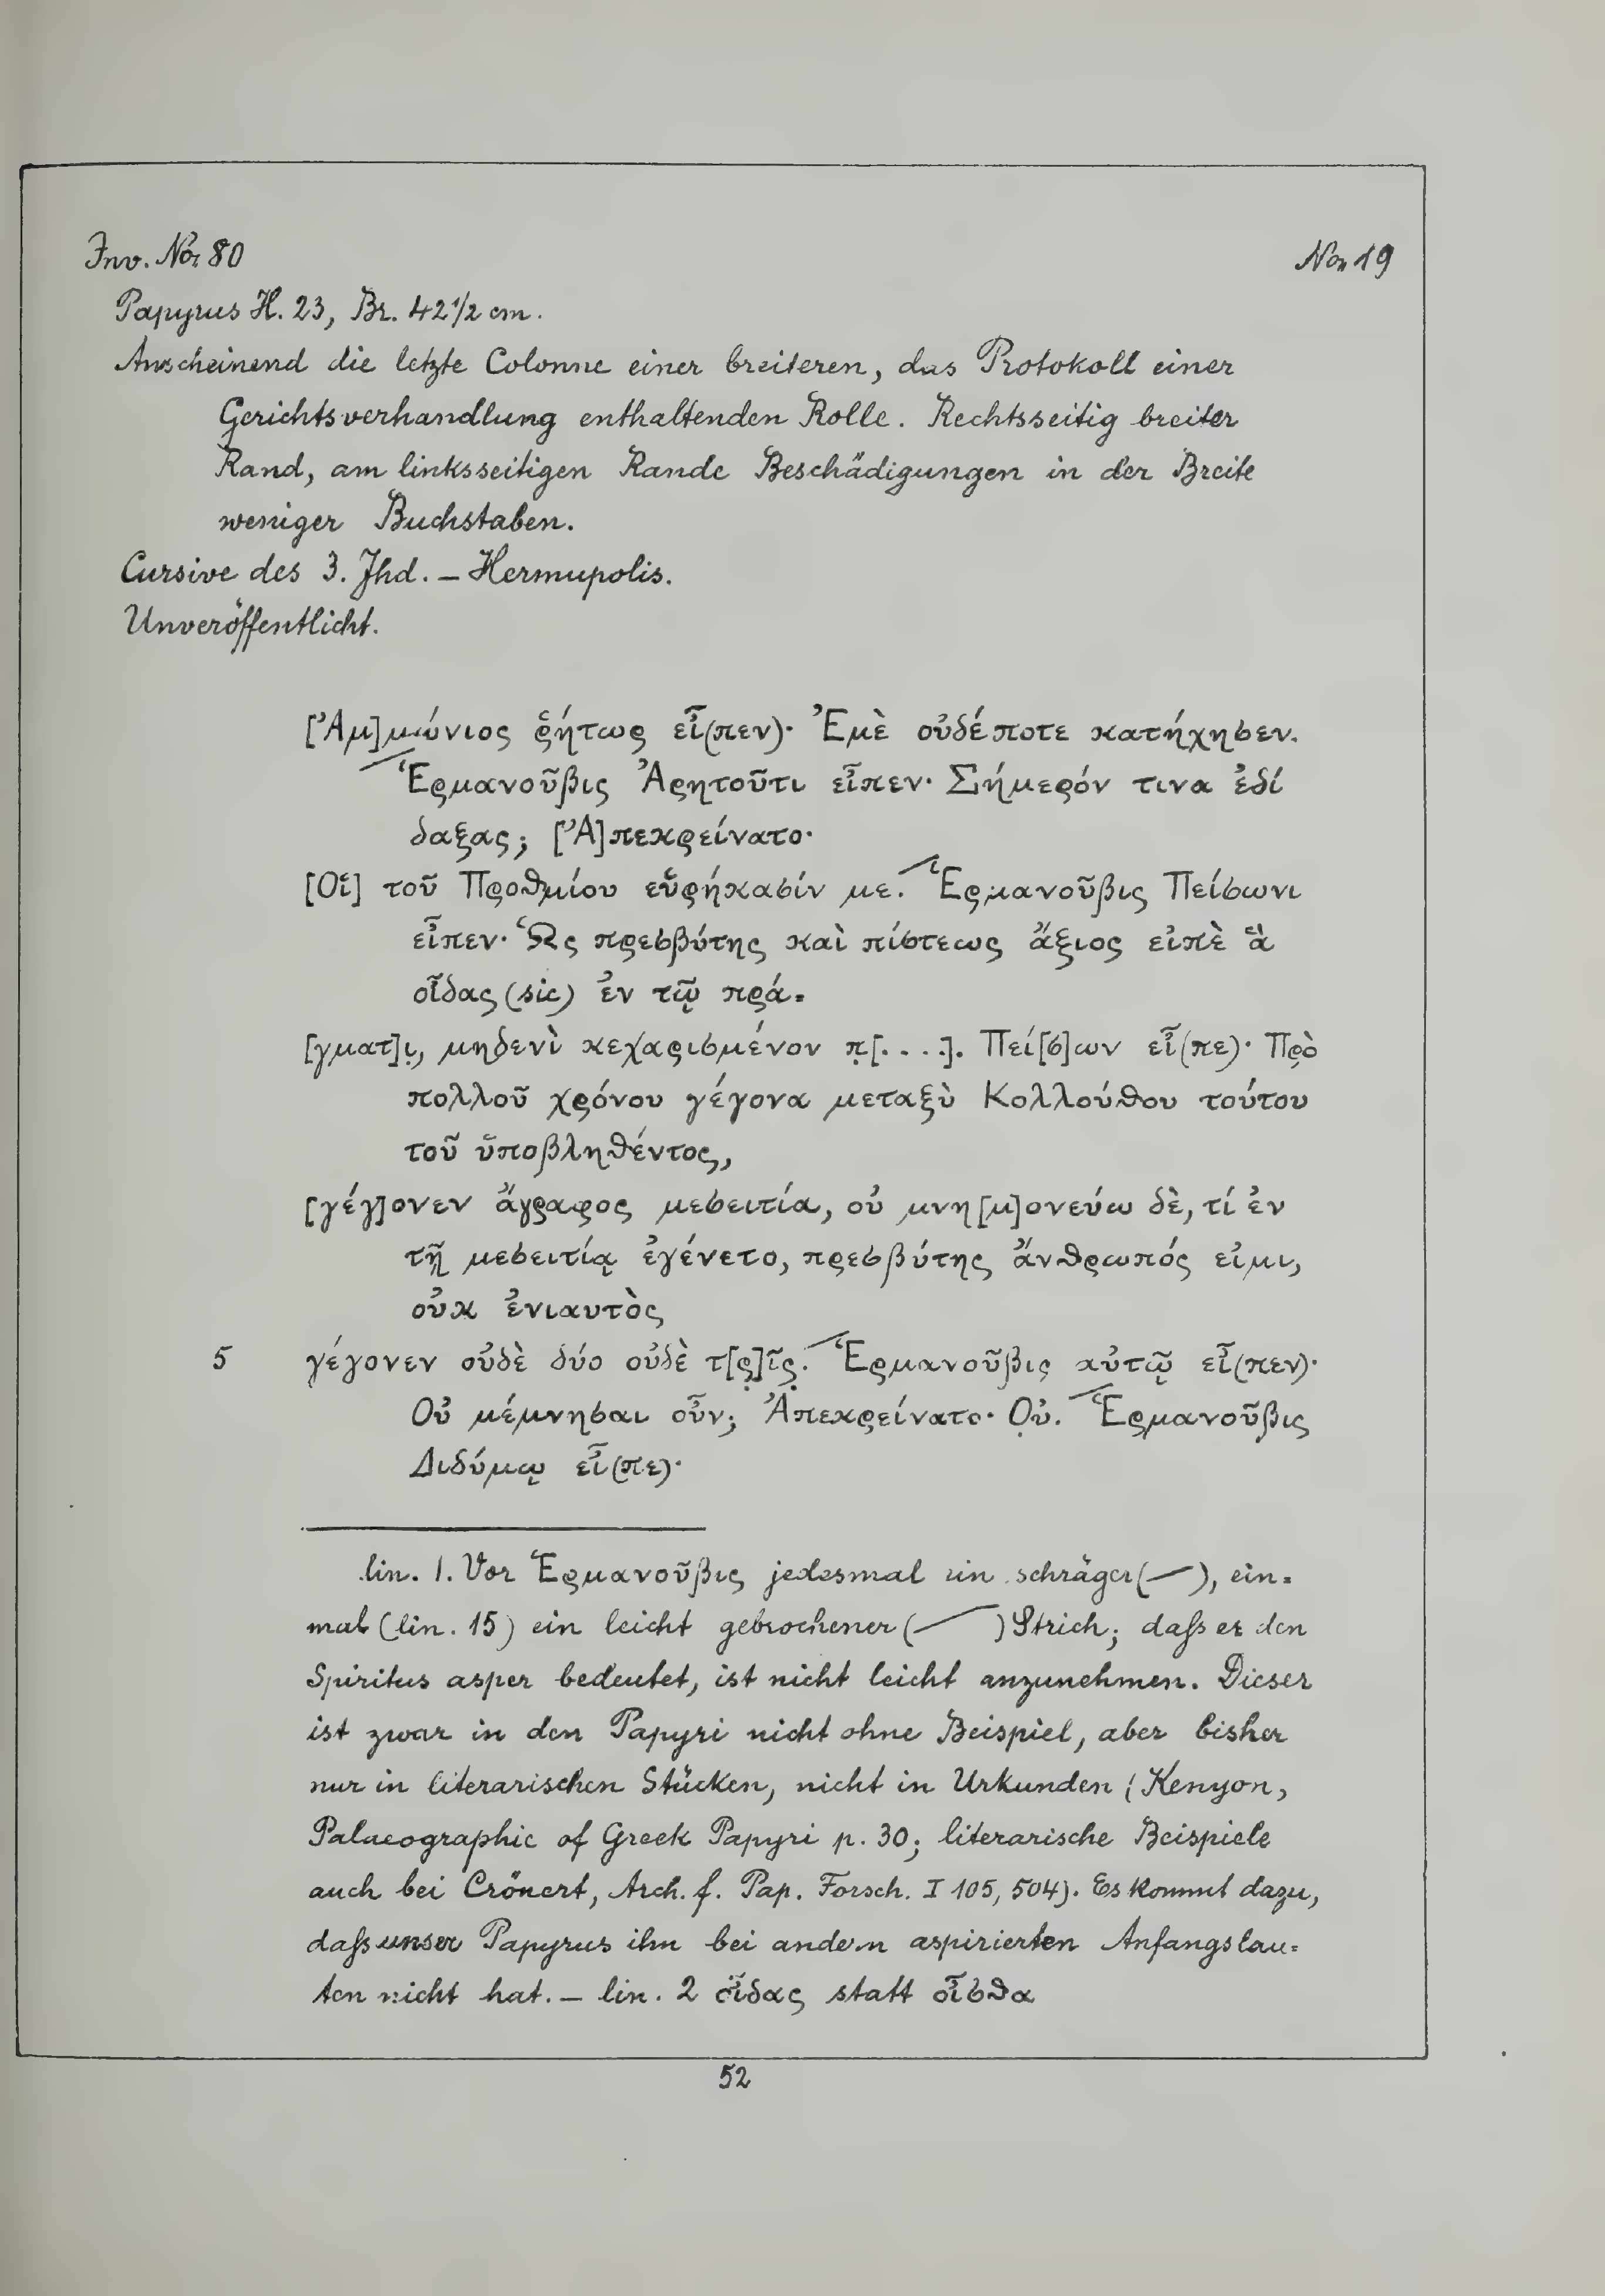 Inv. No. 80 No. 19
Papyrus H. 23, Br. 42 1/2 cm.
Anscheinend die letzte Colonne einer breiteren, das Protokoll einer
Gerichtsverhandlung enthaltenden Rolle. Rechtsseitig breiter
Rand, am linksseitigen Rande Beschädigungen in der Breite
weniger Buchstaben.
Cursive des 3. Jhd. – Hermupolis.
Unveröffentlicht.
[Ἀμ]μώνιος ῥήτωρ εἶ(πεν)· Ἐμὲ οὐδέποτε κατήχησεν.
Ἑρμανοῦβις Ἀρητοῦτι εἶπεν· Σήμερόν τινα ἐδί
δαξας; [Ἀ]πεκρείνατο·
[Οἱ] τοῦ Προθμίου εὑρήκασίν με. Ἑρμανοῦβις Πείσωνι
εἶπεν· Ὡς πρεσβύτης καὶ πίστεως ἄξιος εἰπὲ ἃ
οἶδας (sic) ἐν τῷ πρά-
[γματ]ι̣, μηδενὶ κεχαρισμένον π̣[. . . .]. Πεί[σ]ων εἶ(πε)· Πρὸ
πολλοῦ χρόνου γέγονα μεταξὺ Κολλούθου τούτου
τοῦ ὑποβληθέντος,
[γέγ]ονεν ἄγραφος μεσειτία, οὐ μνη[μ]ονεύω δὲ, τί ἐν
τῇ μεσειτίᾳ ἐγένετο, πρεσβύτης ἄνθρωπός εἰμι,
οὐκ ἐνιαυτὸς
5 γέγονεν οὐδὲ δύο οὐδὲ τ[ρ̣]ῖς̣. Ἑρμανοῦβις αὐτῷ εἶ(πεν)·
Οὐ μέμνησαι οὖν; Ἀπεκρείνατο· Ο̣ὐ. Ἑρμανοῦβις
Διδύμῳ εἶ(πε)·
lin. 1. Vor Ἑρμανοῦβις jedesmal ein schräger (—), ein-
mal (lin. 15) ein leicht gebrochener (—) Strich; daß er den
Spiritus asper bedeutet, ist nicht leicht anzunehmen. Dieser
ist zwar in den Papyri nicht ohne Beispiel, aber bisher
nur in literarischen Stücken, nicht in Urkunden (Kenyon,
Palaeographie of Greek Papyri p. 30; literarische Beispiele
auch bei Crönert, Arch. f. Pap. Forsch. I 105, 504). Es kommt dazu,
daß unser Papyrus ihn bei andern aspirierten Anfangslau-
ten nicht hat. – lin. 2 οἶδας statt οἶσθα
52